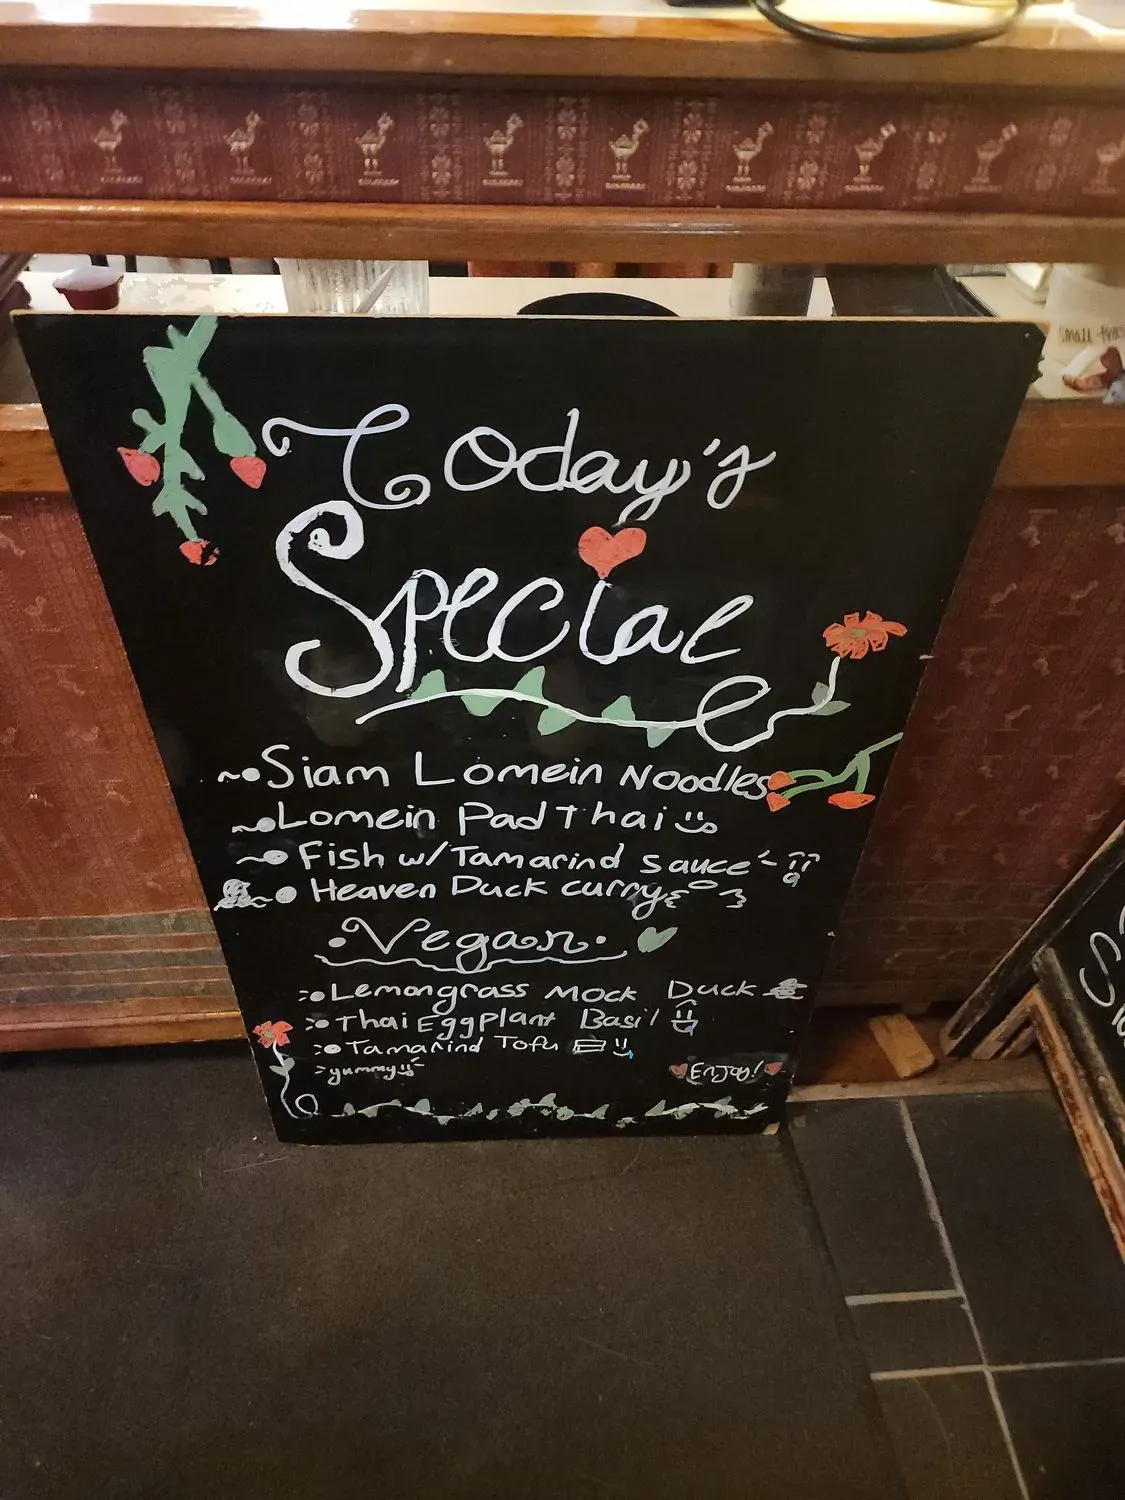 Today's
Special
Siam Lomein Noodles
Lomein Pad Thai
Fish w/Tamarind sauce
Heaven Duck curry
Vegan
Lemongrass Mock Duck
Thai Eggplant Basil
Tamarind Tofu
yummy
Enjoy!
Small